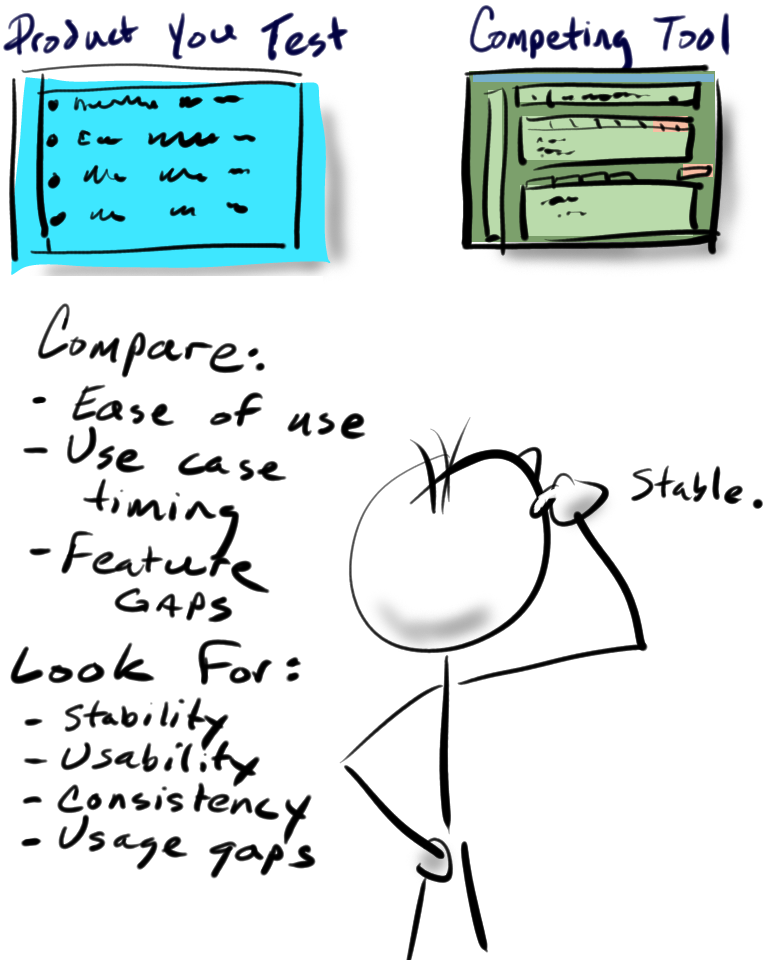 Product You Test
Competing Tool
Compare:
- Ease of use
- Use case
timing
- Feature
GAPS
Stable.
Look For:
- Stability
- Usability
- Consistency
- Usage gaps